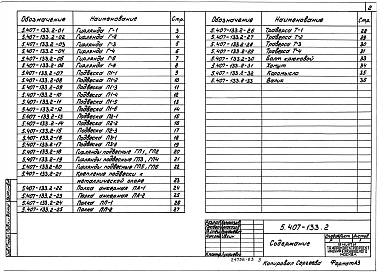 2
Обозначение Наименование Стр.
5.407-133.2-01 Гирлянда Г-1 3
5.407-133.2-02 Гирлянда Г-2 4
5.407-133.2-03 Гирлянда Г-3 5
5.407-133.2-04 Гирлянда Г-4 6
5.407-133.2-05 Гирлянда Г-5 7
5.407-133.2-06 Гирлянда Г-6 8
5.407-133.2-07 Подвеска П1-1 9
5.407-133.2-08 Подвеска П1-2 10
5.407-133.2-09 Подвеска П1-3 11
5.407-133.2-10 Подвеска П1-4 12
5.407-133.2-11 Подвеска П1-5 13
5.407-133.2-12 Подвеска П1-6 14
5.407-133.2-13 Подвеска П2-1 15
5.407-133.2-14 Подвеска П2-2 16
5.407-133.2-15 Подвеска П2-3 17
5.407-133.2-16 Подвеска 18
5.407-133.2-17 Подвеска 19
5.407-133.2-18 Гирлянды подвесные ГП1, ГП2 20
5.407-133.2-19 Гирлянды подвесные ГП3, ГП4 21
5.407-133.2-20 Гирлянды подвесные ГП5, ГП6 22
5.407-133.2-21 Крепление подвески к
металлической опоре 23
5.407-133.2-22 Полка анкерная ПА-1 24
5.407-133.2-23 Полка анкерная ПА-2 25
5.407-133.2-24 Полка ПП-1 26
5.407-133.2-25 Полка ПП-2 27
Обозначение Наименование Стр.
5.407-133.2-26 Траверса Т-1 28
5.407-133.2-27 Траверса Т-2 29
5.407-133.2-28 Траверса Т-3 30
5.407-133.2-29 Траверса Т-4 31
5.407-133.2-30 Болт крюковой 33
5.407-133.2-31 Хомут 34
5.407-133.2-32 Коромысло 35
5.407-133.2-33 Валик 35
5.407-133.2
Содержание
Копировал Сергеева Формат А3